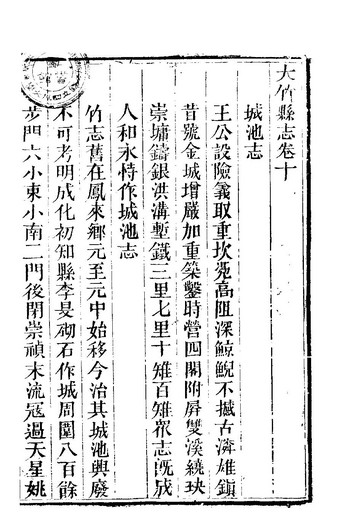 大竹縣志卷十
城池志
王公設險義取重坎兖高阻深鯨鯢不撼古濟雄鎭
昔號金城增嚴加重築鑿時營四關附屏雙溪繞玦
崇墉鑄銀洪溝塹鐵三里七里十雉百雉眾志旣成
人和永恃作城池志
竹志舊在鳳來鄉元至元中始移今治其城池興廢
不可考明成化初知縣李旻砌石作城周圍八百餘
步門六小東小南二門後閉崇禎末流冦過天星姚